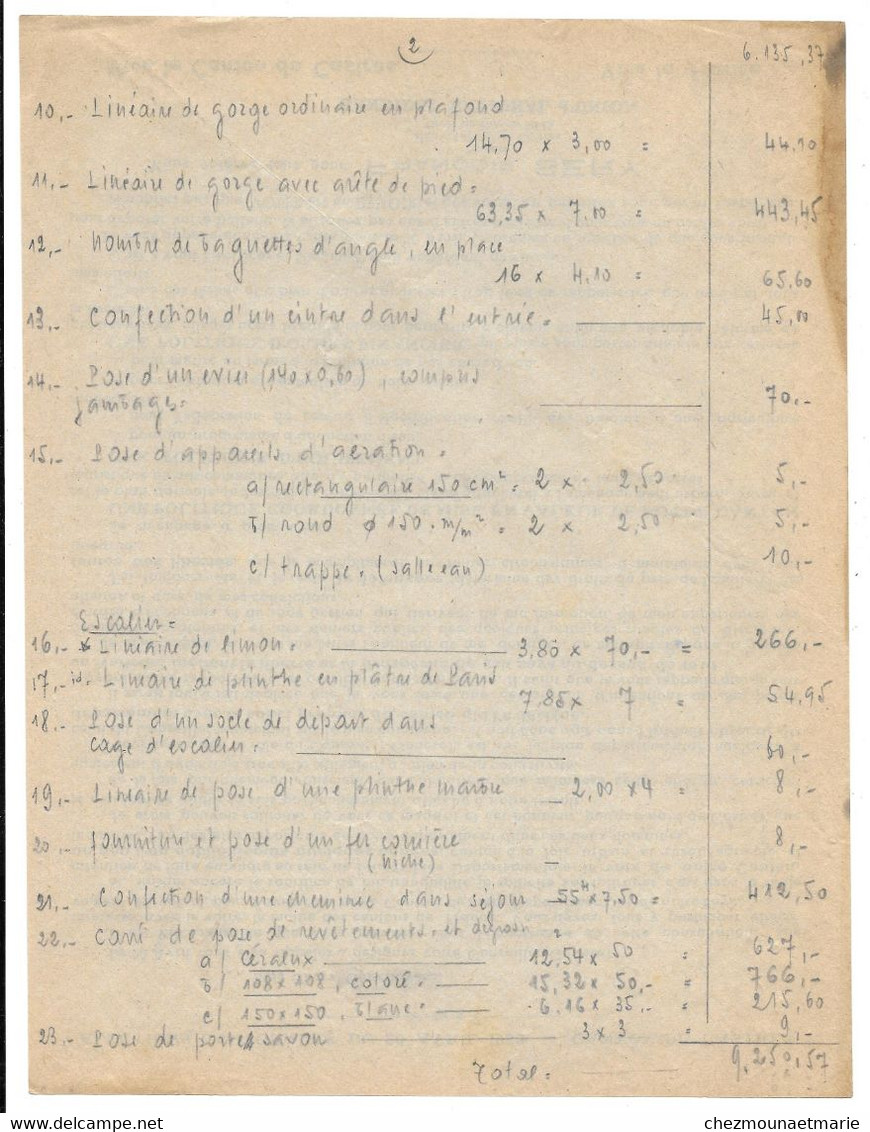 2
6.135,37
10,- Linéaire de gorge ordinaire en plafond
14,70 x 3,00 = 44.10
11,- Linéaire de gorge avec arête de pied =
63,35 x 7.00 = 443,45
12,- Nombre de baguettes d'angle, en place
16 x 4,10 = 65.60
13,- Confection d'un cintre dans l'entrée = 45,00
14,- Pose d'un evier (1,40 x 0,60), compris
jambages = 70,-
15,- Pose d'appareils d'aération =
a/ rectangulaire 150 cm² = 2 x 2,50 5,-
b/ rond φ 150 m/m² = 2 x 2,50 5,-
c/ trappe = (salle eau) 10,-
Escalier =
16,- Linéaire de limon = 3,80 x 70,- = 266,-
17,- id - Linéaire de plinthe en plâtre de Paris
7.85 x 7 = 54,95
18,- Pose d'un socle de départ dans
cage d'escalier = 60,-
19,- Linéaire de pose d'une plinthe marbre 2,00 x 4 = 8,-
20,- fourniture et pose d'un fer cornière 8,-
(niche)
21,- Confection d'une cheminée dans séjour 55H x 7,50 = 412,50
22,- Carré de pose de revêtements =
a/ Céralux 12,54 x 50 = 627,-
b/ 108 x 108, coloré = 15,32 x 50,- = 766,-
c/ 150 x 150, blanc = 6.16 x 35,- = 215,60
23,- Pose de portes savon 3 x 3 = 9,-
Total = 9,250,57
chezmounaetmarie